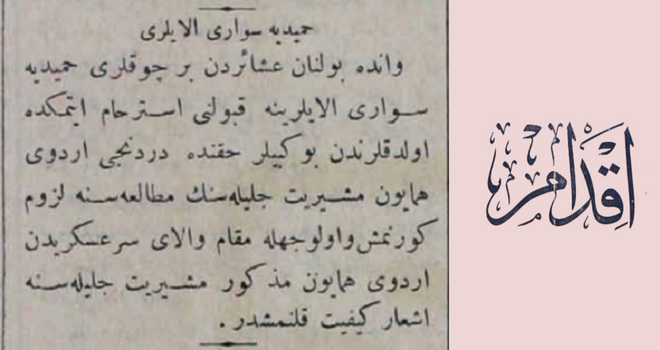 حمیدیه سواری الایلری
وانده بولنان عشائردن بر چوقلری حمیدیه
سواری الایلرینه قبولنی استرحام ایتمکده
اولدقلرندن بو کبیلر حقنده دردنجی اردوی
همایون مشیریت جلیله‌سنك مطالعه‌سنه لزوم
کورنمش واولوجهله مقام والای سرعسکریدن
اردوی همایون مذکور مشیریت جلیله‌سنه
اشعار کیفیت قلنمشدر .
اقدام